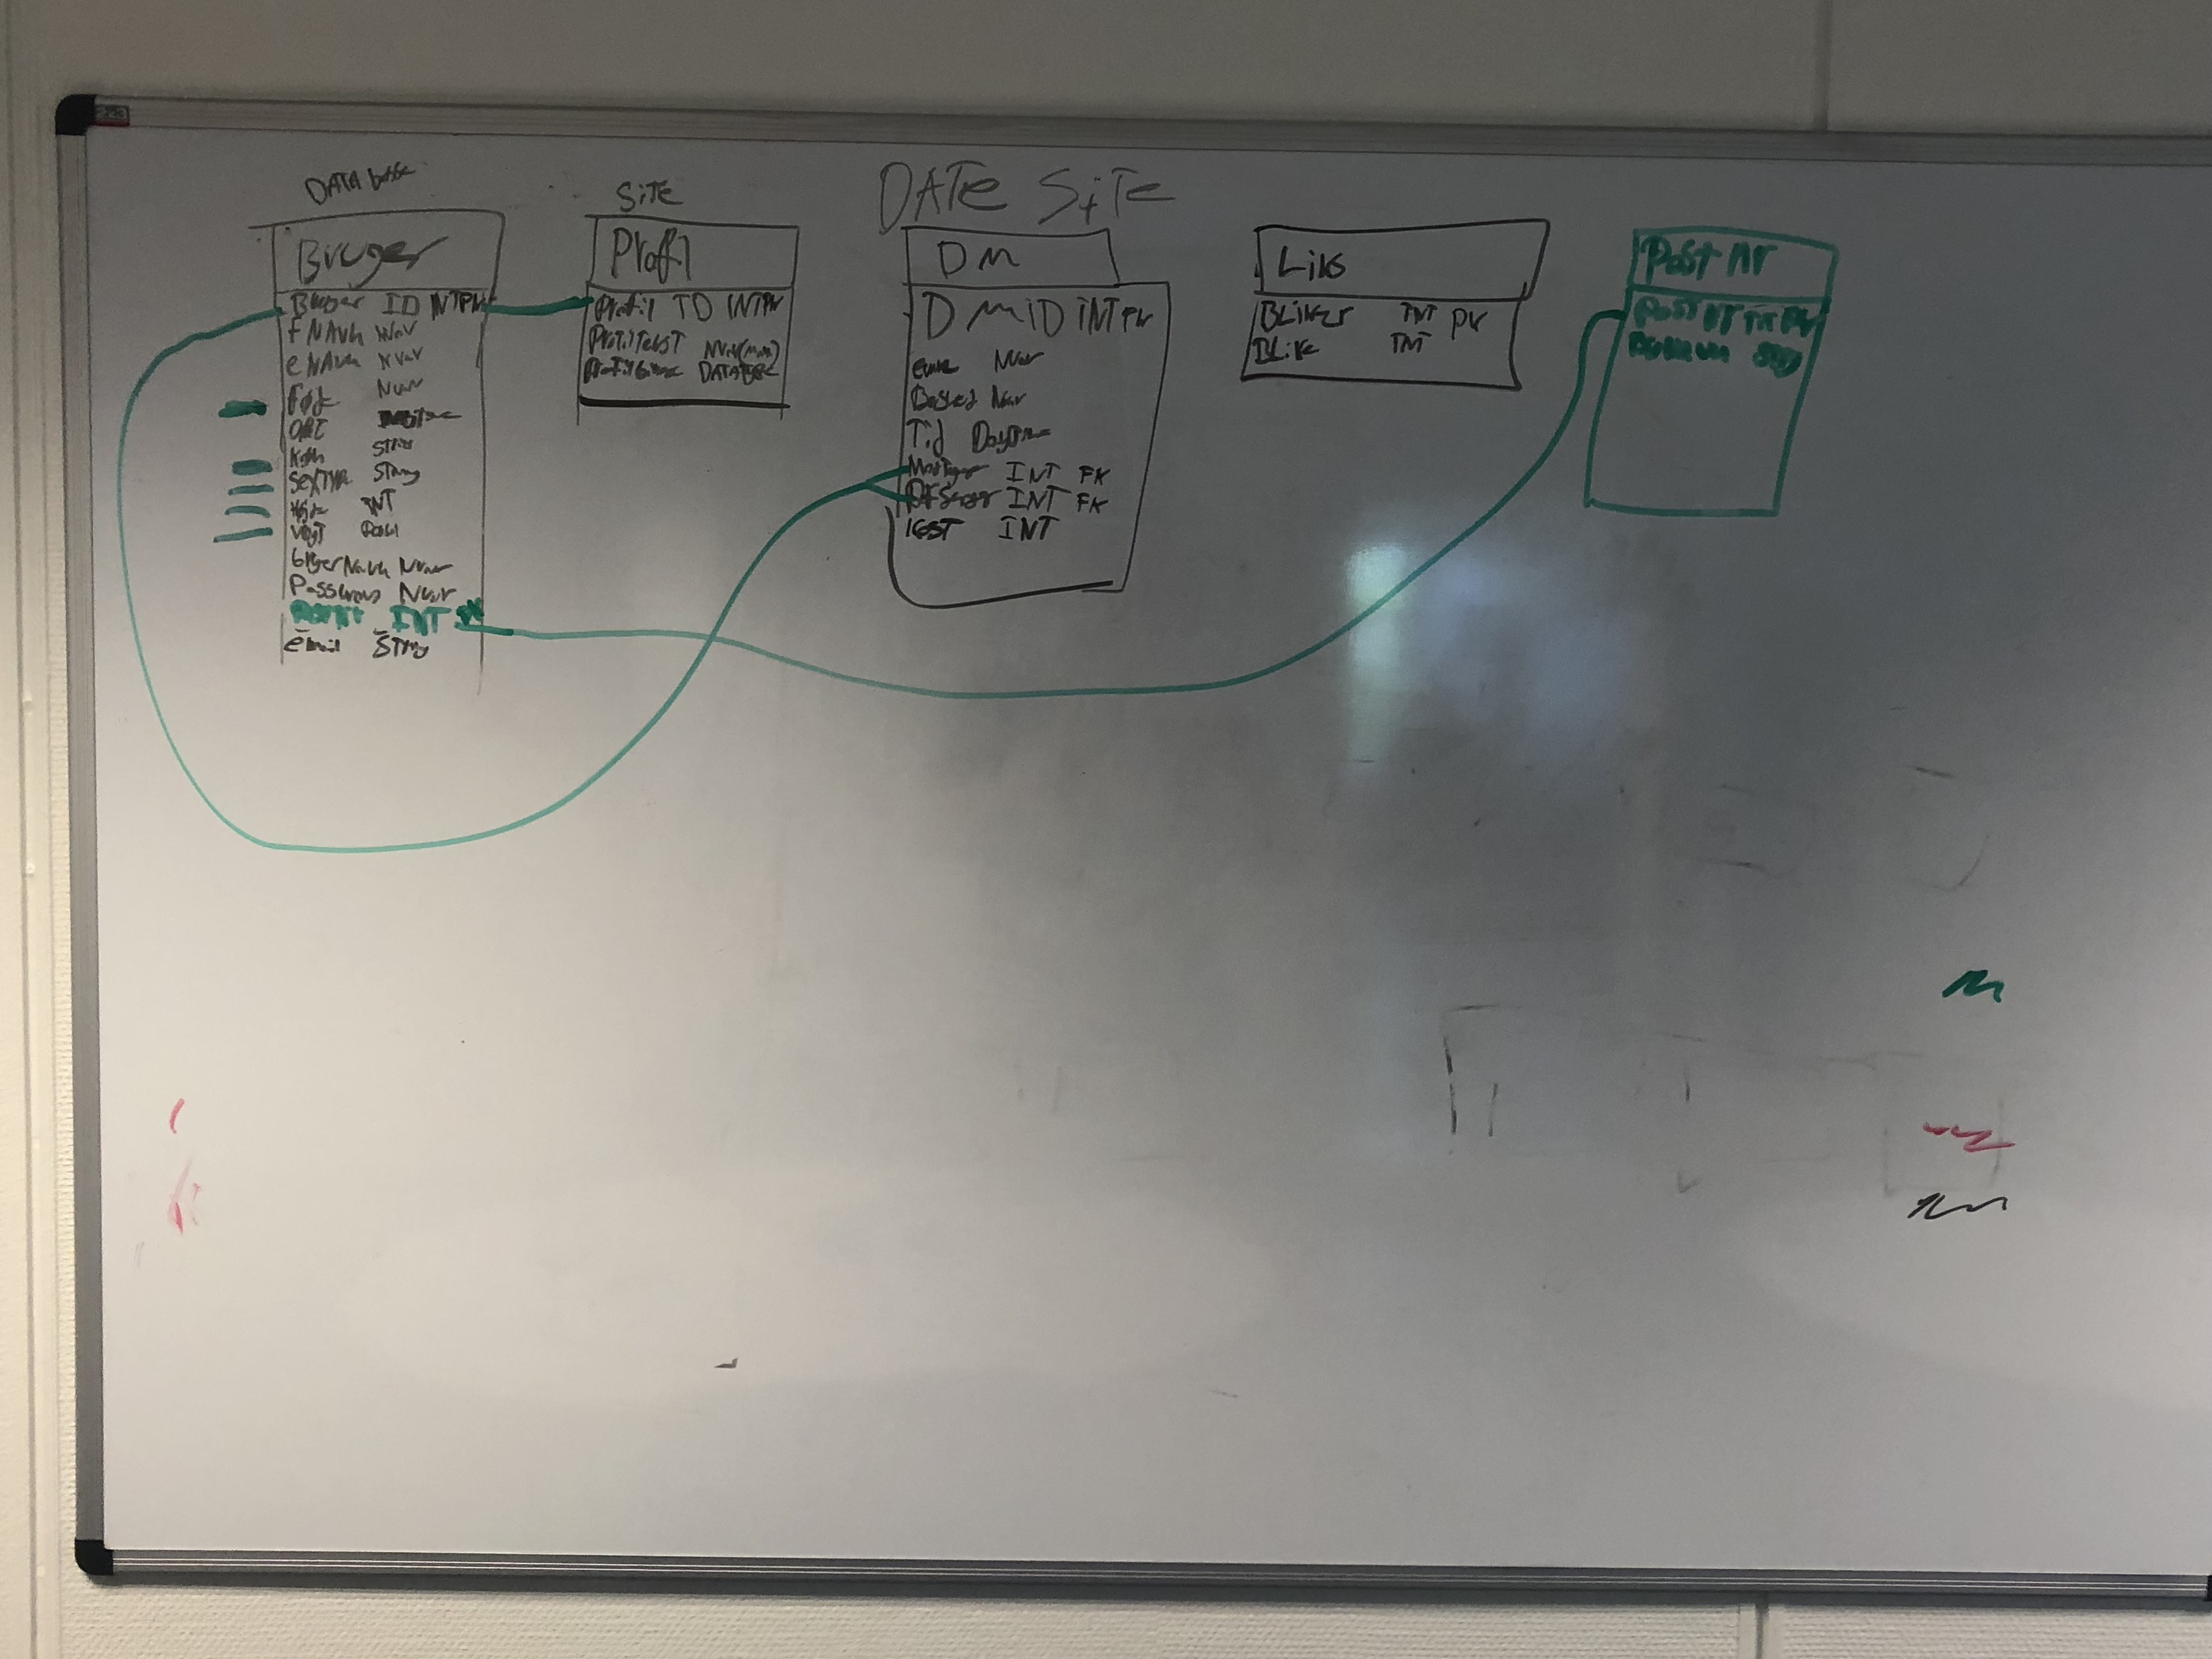 DATA base
SITE
DATE SiTe
Bruger
Bruger ID INT PK
fNAVN NVar
eNAVN NVar
Nvar
ORT
Køn String
Sextype String
INT
Vægt
brugerNavn Nvar
Password Nvar
INT
email String
Profil
Profil ID INT PK
Profiltekst NVar(max)
DATATYPE
DM
DMID INT PK
emne Nvar
Besked Nvar
Tid
Modtager INT FK
Afsender INT FK
lÆST INT
Liks
BLikes INT PK
BLike INT
Post Nr
Post Nr INT PK